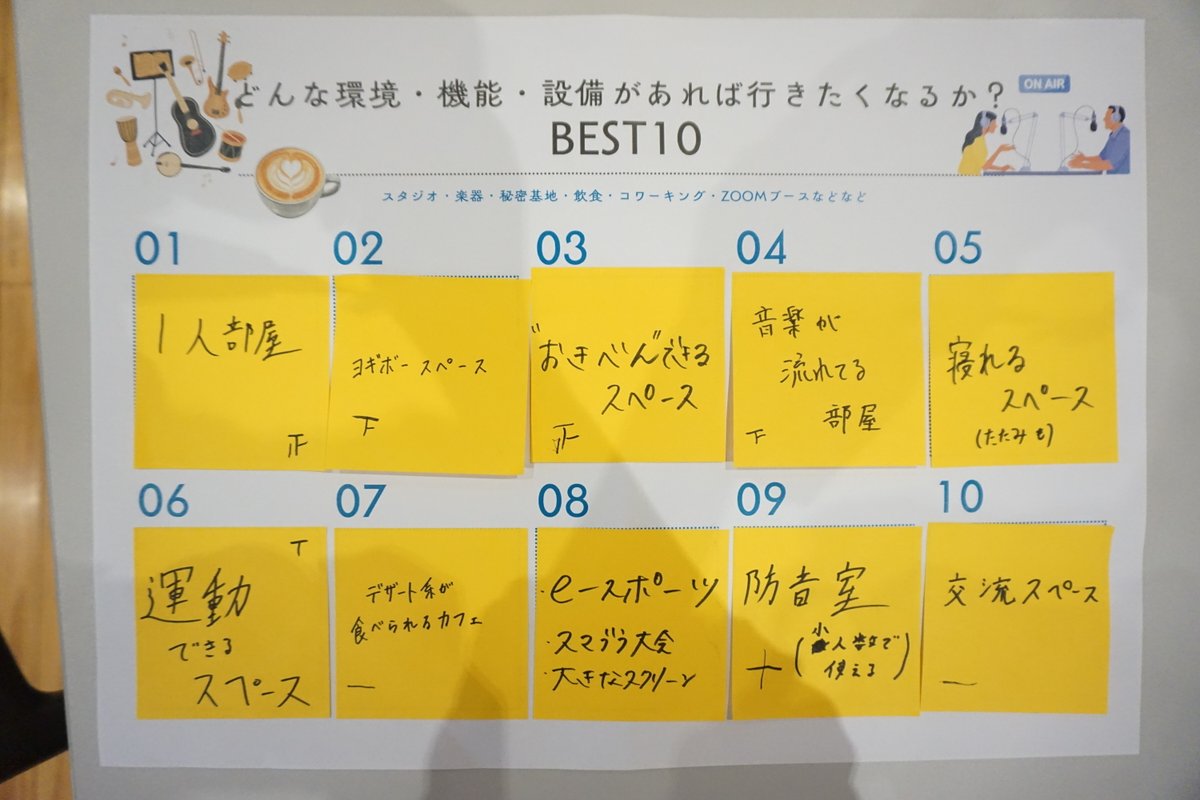 どんな環境・機能・設備があれば行きたくなるか？
ON AIR
BEST10
スタジオ・楽器・秘密基地・飲食・コワーキング・ZOOMブースなどなど
01
1人部屋
正
02
ヨギボースペース
下
03
"おきべん"できる
スペース
正
04
音楽が
流れてる
部屋
下
05
寝れる
スペース
(たたみも)
06
T
運動
できる
スペース
07
デザート系が
食べられるカフェ
一
08
・eースポーツ
・スマブラ大会
・大きなスクリーン
09
防音室
(小人数で
使える)
10
交流スペース
一